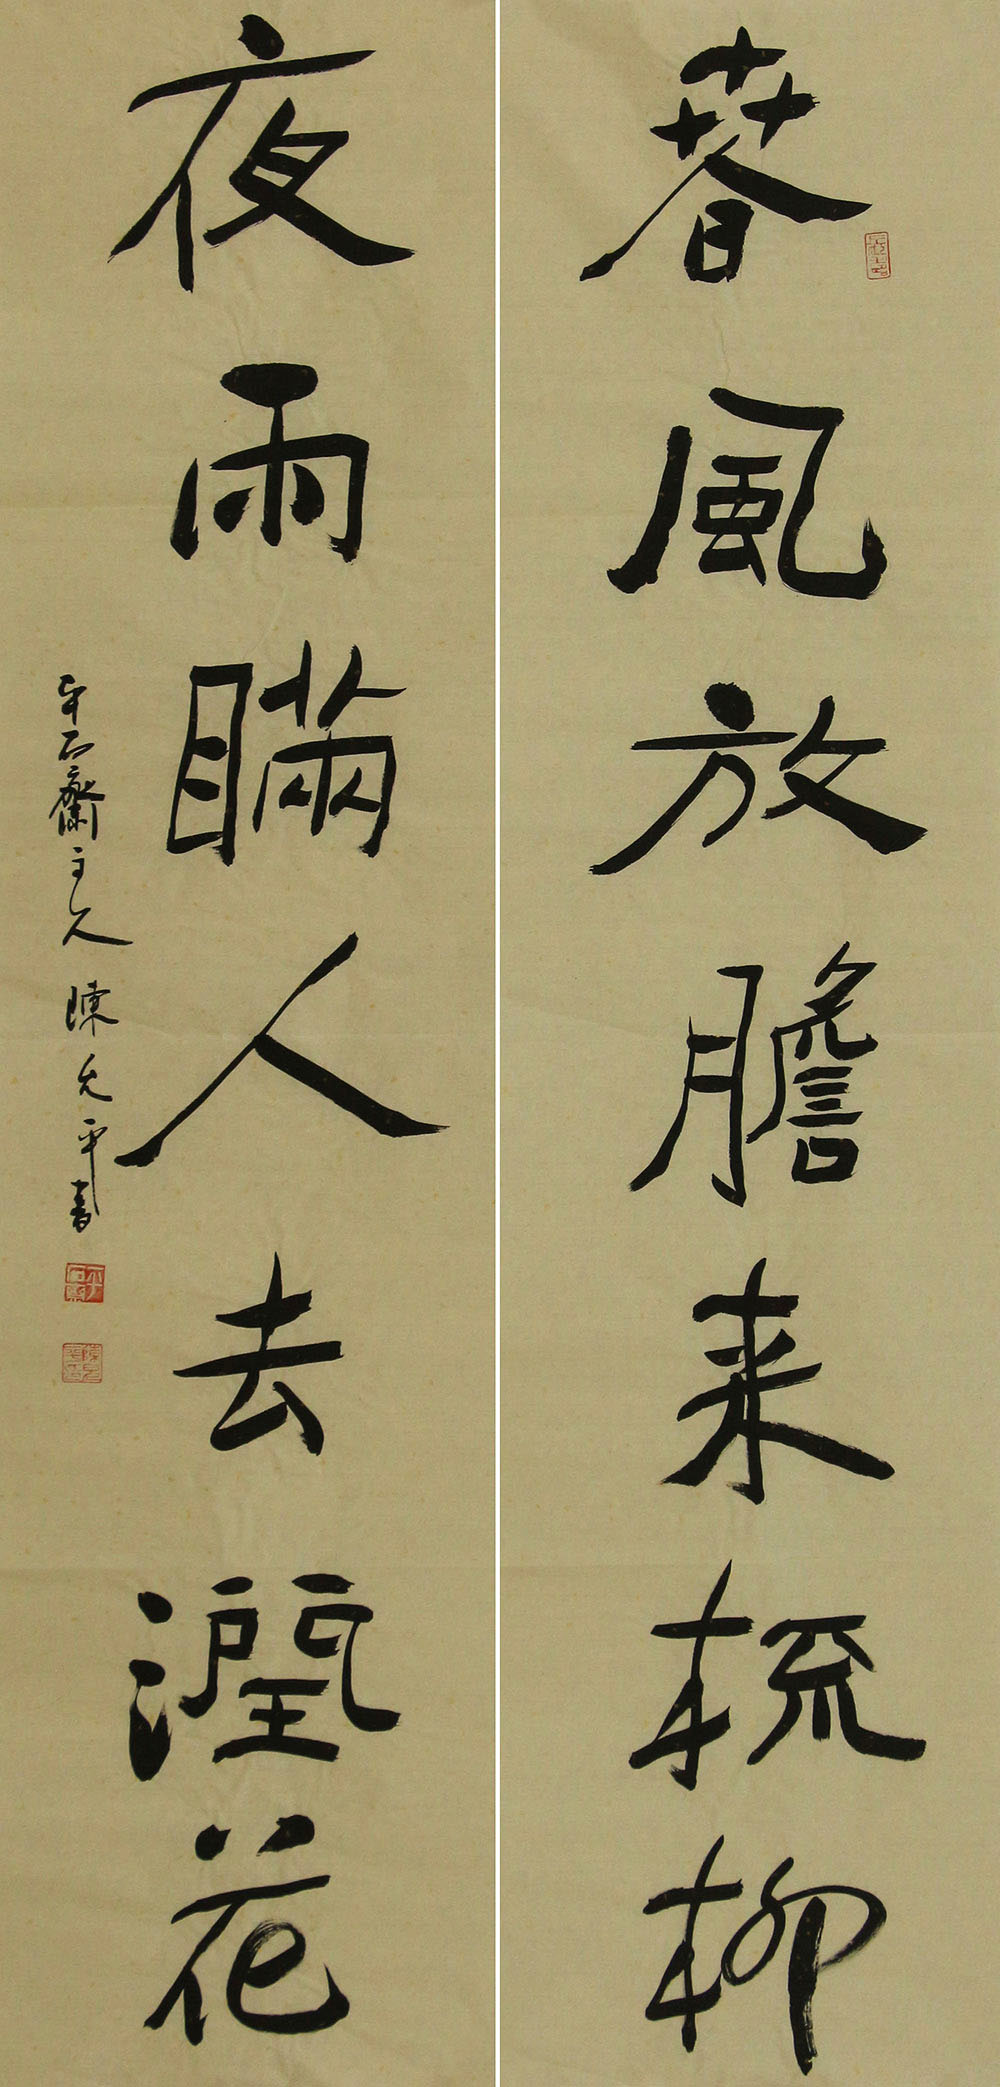 春風放膽来梳柳
夜雨瞞人去潤花
平石齋主人陳允平書